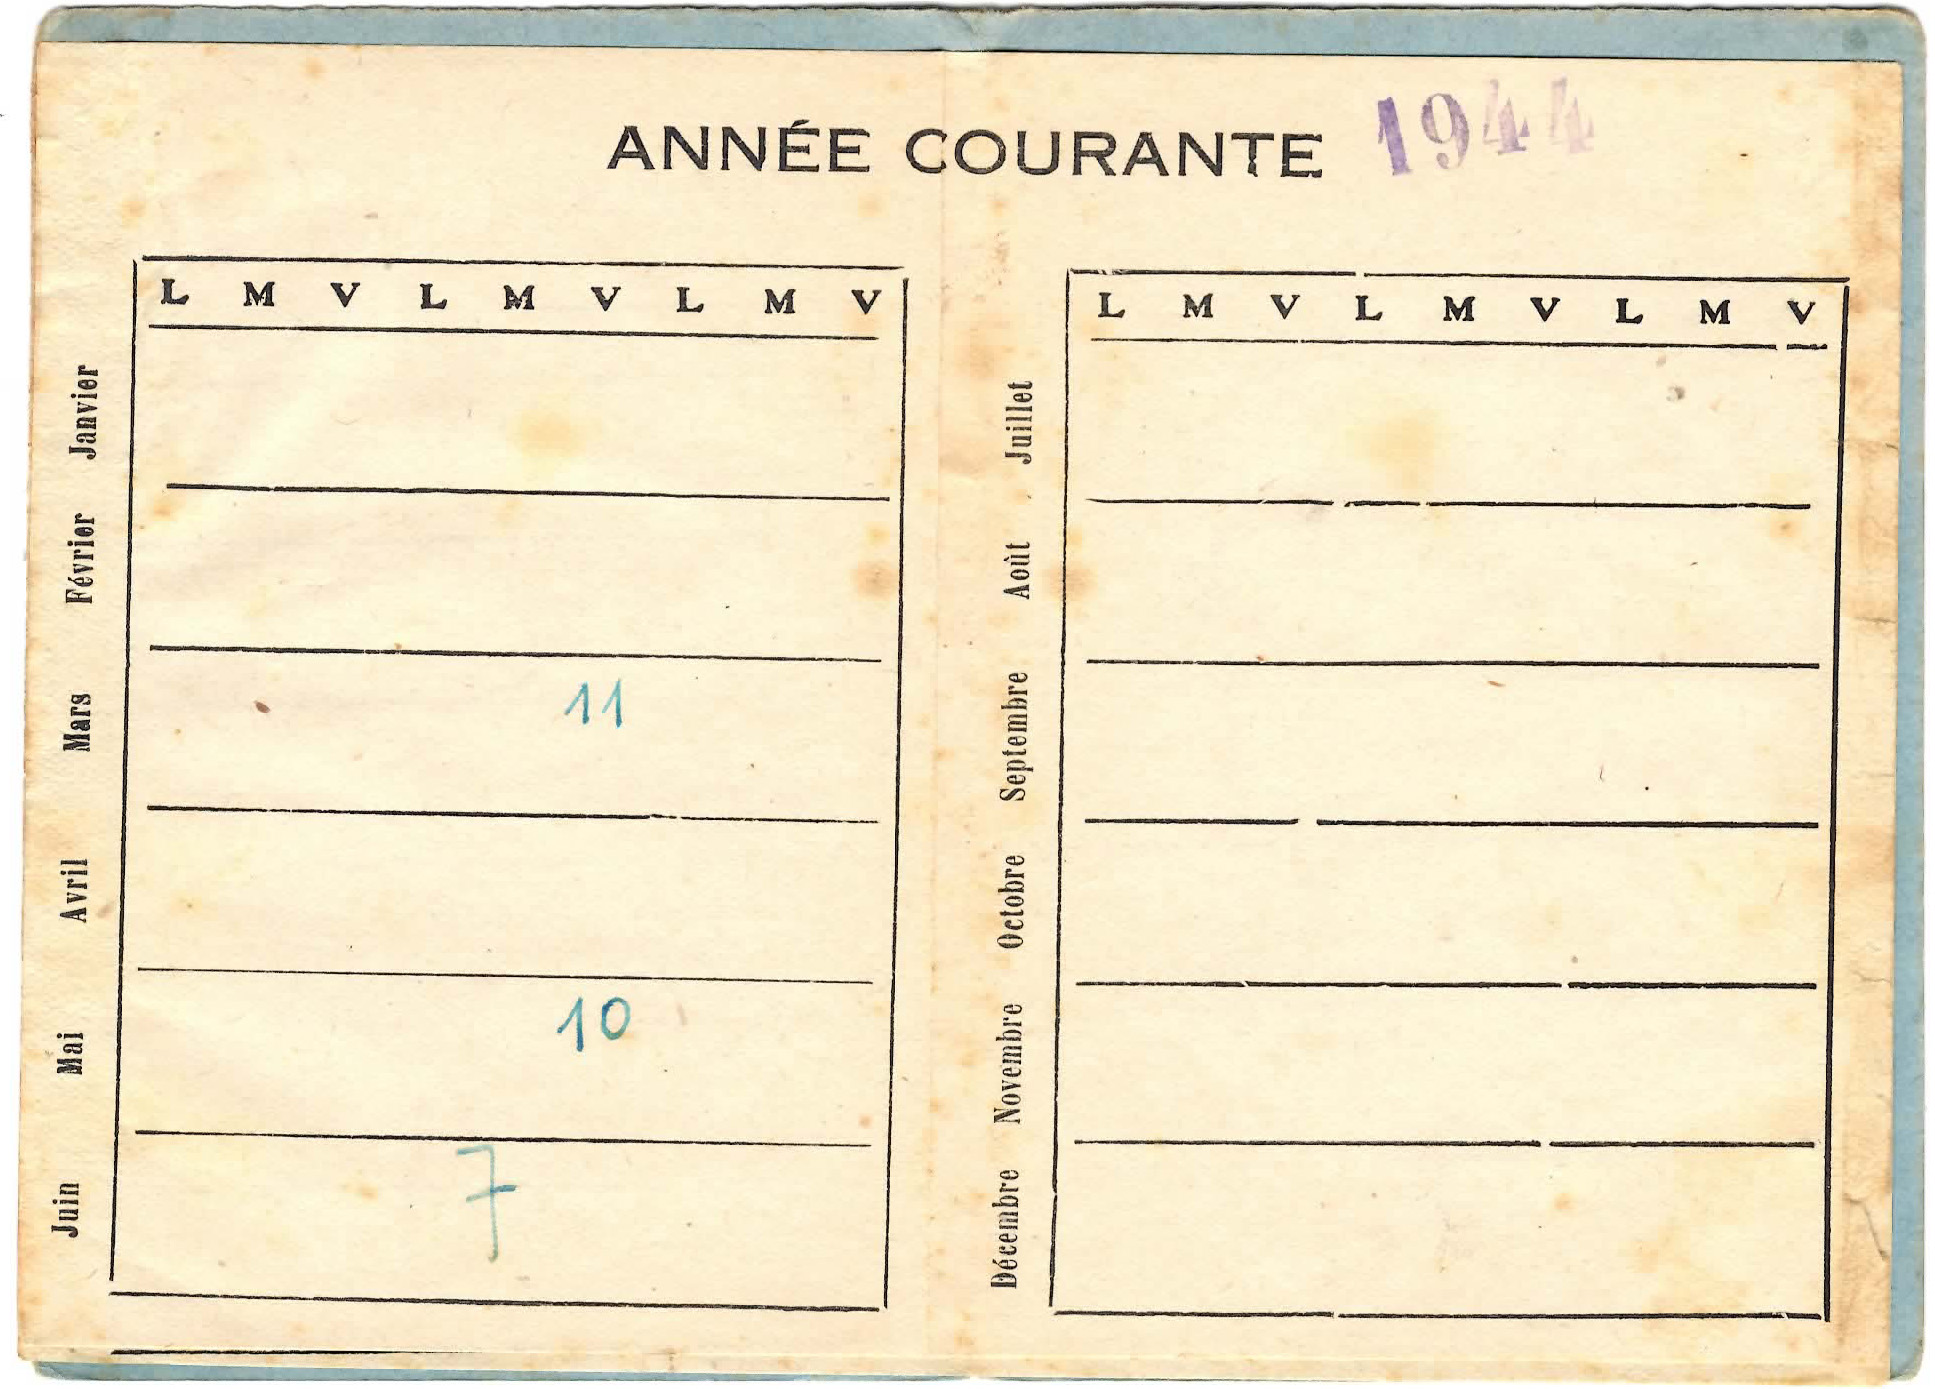 ANNÉE COURANTE 1944
L M V L M V L M V
Janvier
Février
Mars
11
Avril
Mai
10
Juin
7
L M V L M V L M V
Juillet
Août
Septembre
Octobre
Novembre
Décembre